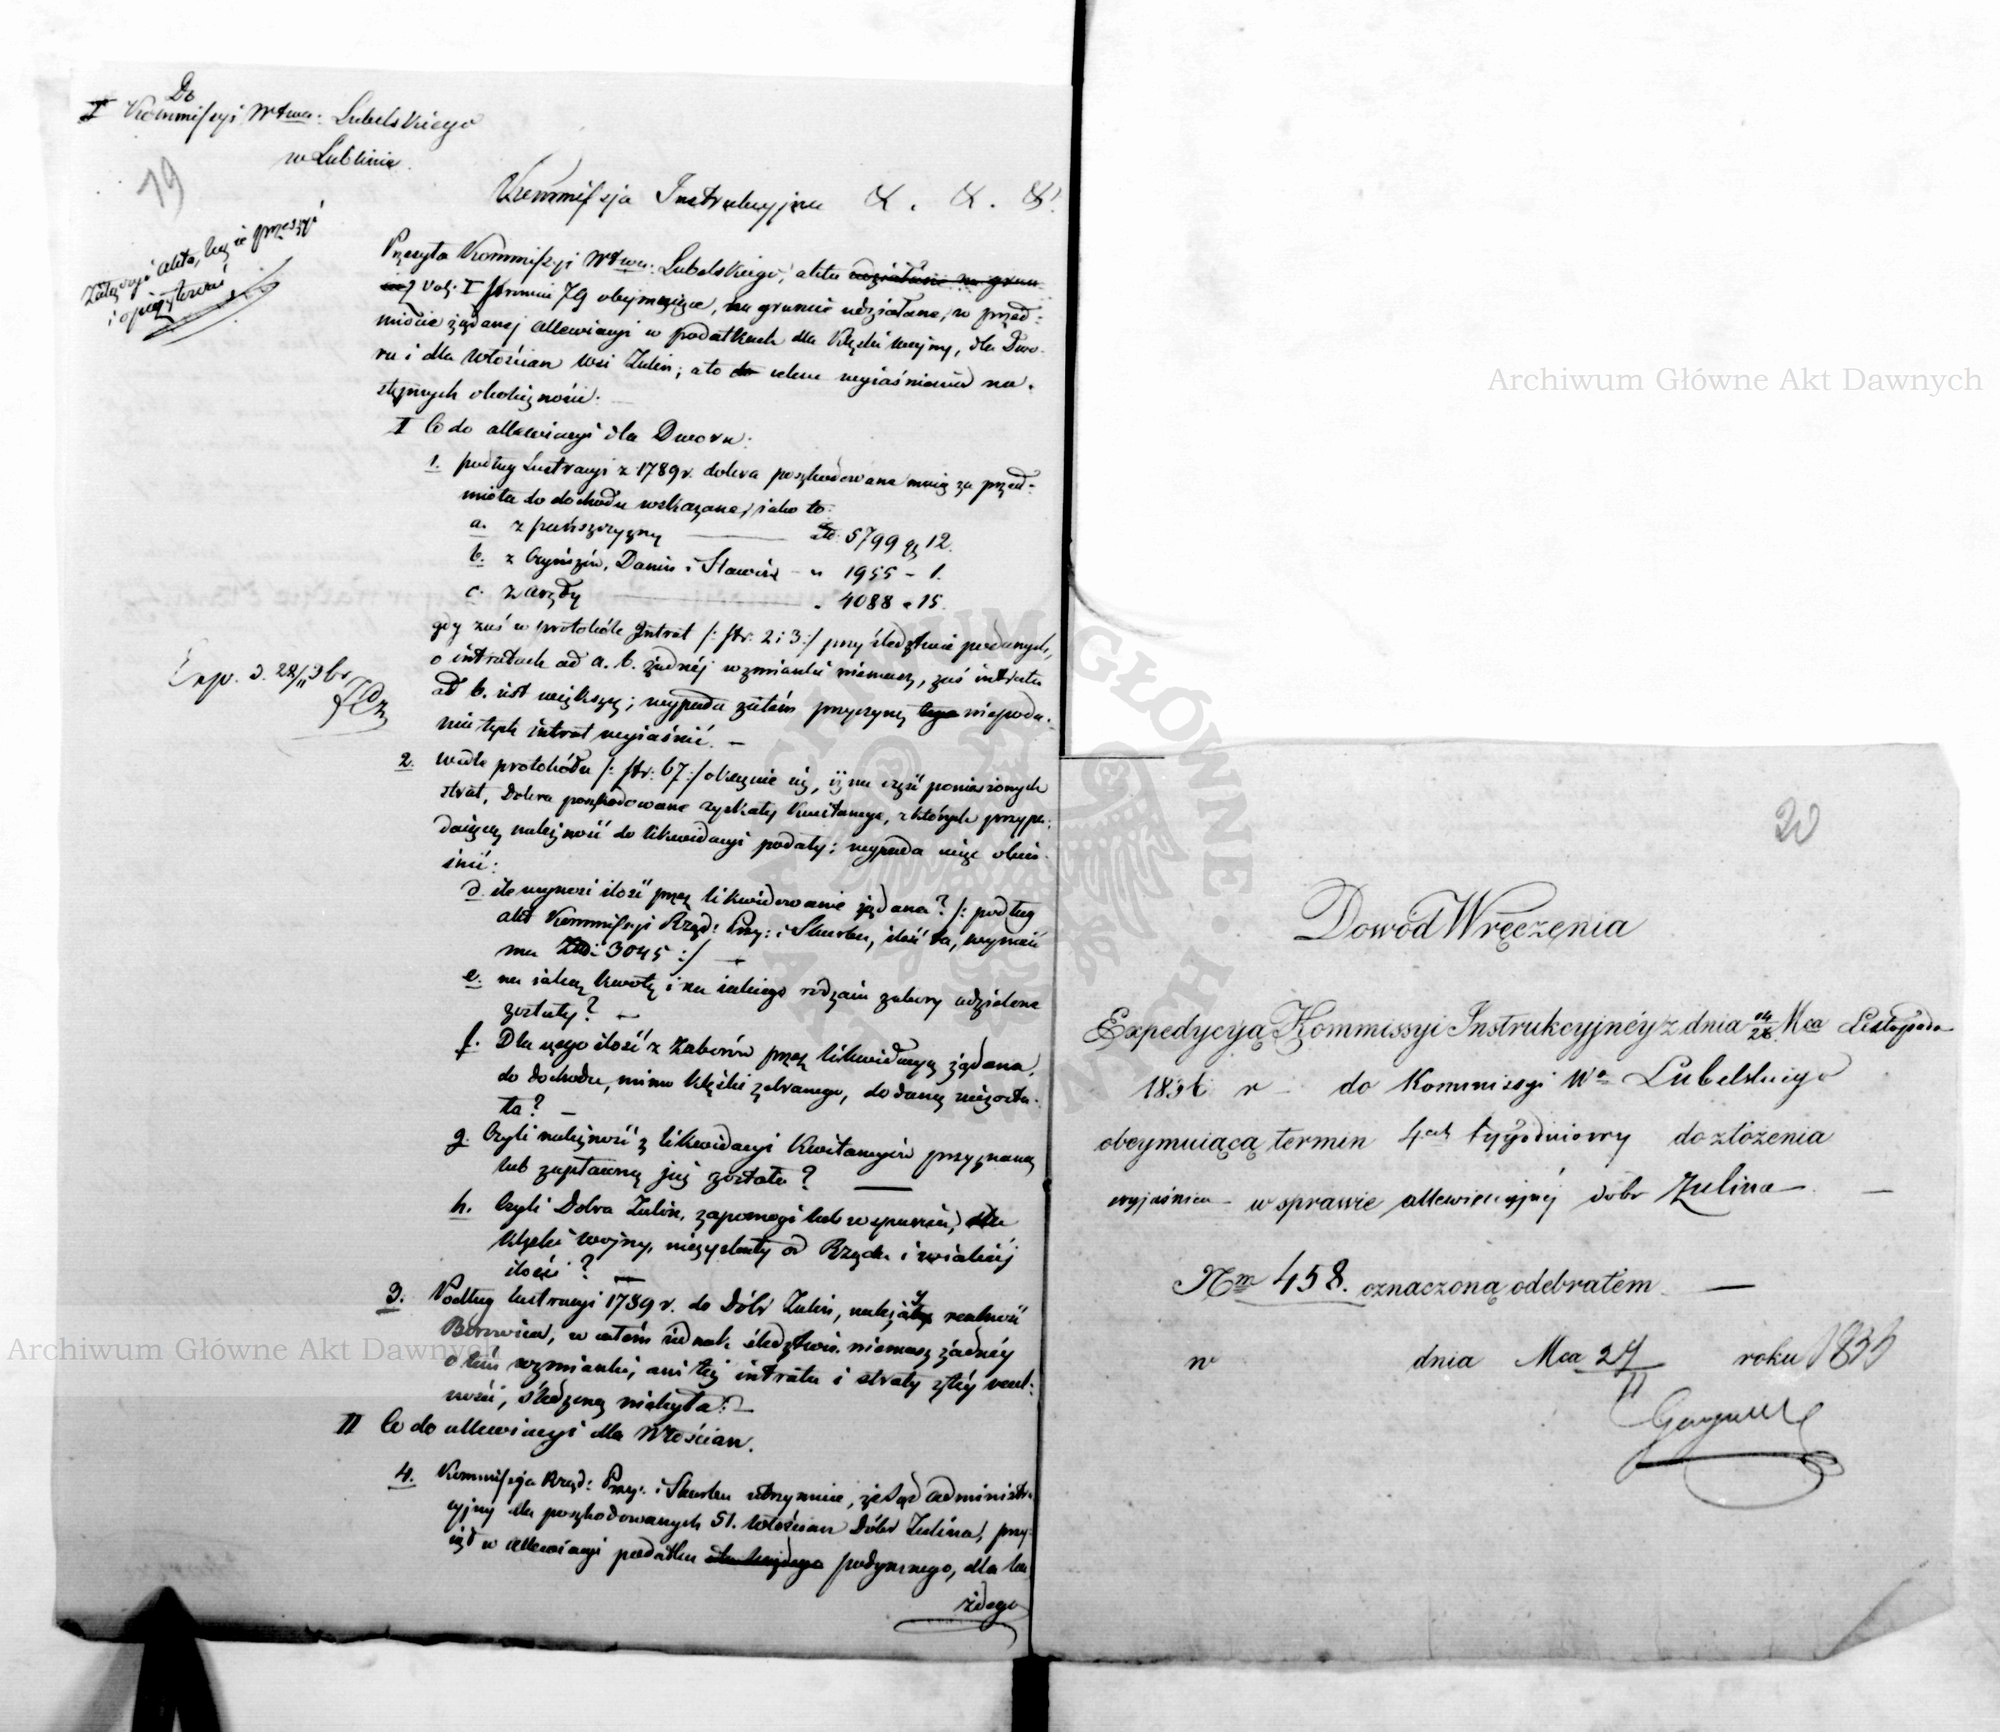 Do
I Kommissyi Wdwa: Lubelskiego
w Lublinie.
19
Załączyć akta, łącze przeszyć
i opieczętować
Kommissja Instrukcyjna &. &. &.
Przesyła Kommissyi Wdwa: Lubelskiego, akta udziałane na grun
cie Vol: I stronnic 79 obejmujące, na gruncie udziałane, w przed-
miocie żądanej allewiacyi w podatkach dla klęski wojny, dla Dwo-
ru i dla Włościan wsi Zulin; a to w celu wyjaśnienia na-
stępnych okoliczności: —
I Co do allewiacyi dla Dworu:
1. podług Lustracyi z 1789 r. dobra poszkodowane maią za przed-
miota do dochodu wskazane, iako to:
a. z pańszczyzny — Złt: 5799 gr 12.
b. z Czynszów, Danin i Stawów — " 1955 – 1.
c. z arędy — " 4088 " 15.
gdy zaś w protokóle Intrat /: str: 2 i 3 :/ przy śledztwie podanych,
o intratach ad a. b. żadnéj wzmianki niemasz, zaś intrata
ad b. iest większą; wypada zatém przyczynę niepoda-
nia tych intrat wyiaśnić. —
Exp. d. 28/11 9br
2. wedle protokółu /: str: 67 :/ okazuie się, iż na część poniesionych
strat, Dobra poszkodowane zyskały Kwitancye, z których przypa-
daiącą należność do likwidacyi podały; wypada więc obia-
śnić:
d. ile wynosi ilość przez likwidowanie żądana? /: podług
akt Kommissyi Rząd: Przy: i Skarbu, ilość ta, wynosić
ma Złt: 3045 :/ —
e. na iaką kwotę i na iakiego rodzaiu zabory udzielone
zostały? —
f. Dla czego ilość z Zaborów przez likwidacyą żądana,
do dochodu, mimo klęski zebranego, dodaną niezosta-
ła? —
g. Czyli należność z likwidacyi Kwitancyów przyznaną
lub zapłaconą już została? —
h. Czyli Dobra Zulin, zapomogi lub wsparcia, dla
klęski wojny, niezyskały od Rządu i w iakiéj
ilości? —
3. Podług lustracyi 1789 r. do Dóbr Zulin, należały realność
Borowica, w całém iednak śledztwie niemasz żadnéj
o tém wzmianki, ani też intrata i straty z téy real-
ności, śledzoną niebyła. —
II Co do allewiacyi dla Włościan.
4. Kommissyja Rząd: Przy: i Skarbu utrzymuie, że Rząd administra-
cyjny dla poszkodowanych 51. włościan Dóbr Zulina, przy-
iął w allewiacyi podatku dla każdego podymnego, dla ka-
żdego
20
Dowód Wręczenia
Expedycyą Kommissyi Instrukcyjnéy z dnia 14/26 Mca Listopada
1836 r – do Kommissyi Wa Lubelskiego
obeymuiącą termin 4ch tygodniowy do złożenia
wyjaśnien – w sprawie allewiacyjnéj dóbr Zulina — —
Nro 458. oznaczoną odebrałem. —
w dnia Mca 27/11 roku 1836